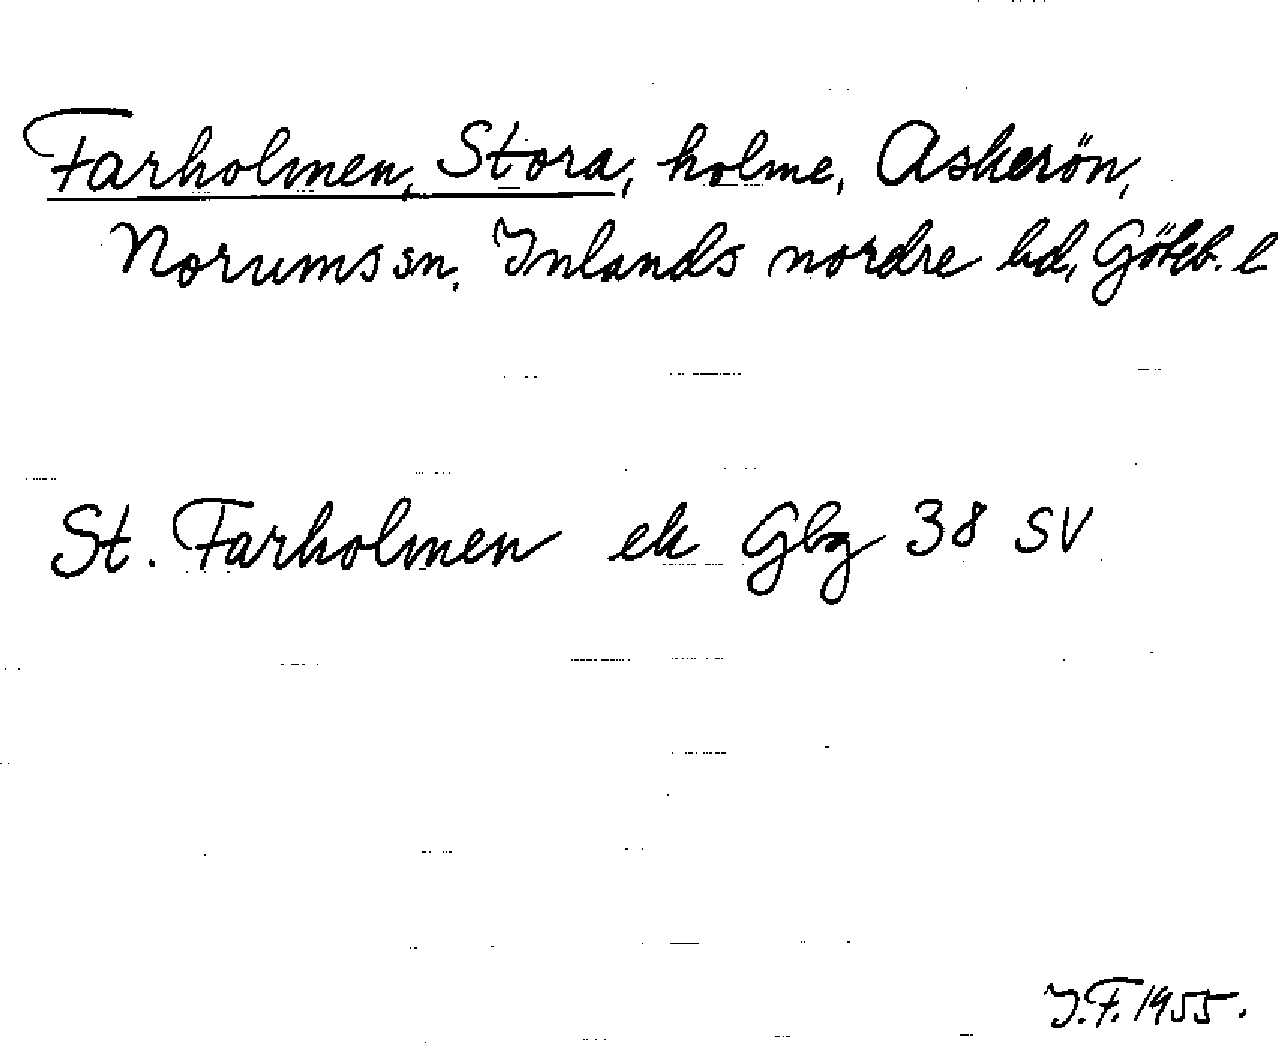 Farholmen, Stora, holme, Askerön,
Norums sn, Inlands nordre hd, Göteb. l
St. Farholmen ek Gbg 38 SV
I.F. 1955.